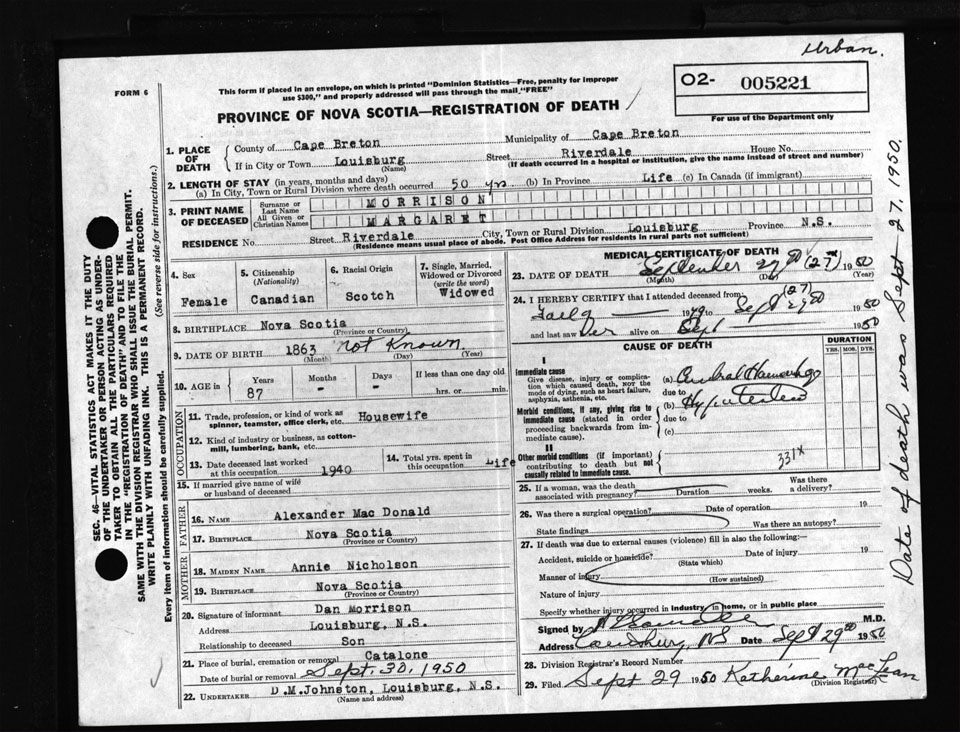 Urban.
FORM 6
This form if placed in an envelope, on which is printed "Dominion Statistics—Free, penalty for improper
use $300," and properly addressed will pass through the mail "FREE"
PROVINCE OF NOVA SCOTIA—REGISTRATION OF DEATH
O2- 005221
For use of the Department only
1. PLACE OF DEATH
County of Cape Breton Municipality of Cape Breton
If in City or Town Louisburg Street Riverdale House No.
(Name) (If death occurred in a hospital or institution, give the name instead of street and number)
2. LENGTH OF STAY (in years, months and days)
(a) In City, Town or Rural Division where death occurred 50 yrs (b) In Province Life (c) In Canada (if immigrant)
3. PRINT NAME OF DECEASED
Surname or Last Name MORRISON
All Given or Christian Names MARGARET
RESIDENCE No. Street Riverdale City, Town or Rural Division Louisburg Province N.S.
(Residence means usual place of abode. Post Office Address for residents in rural parts not sufficient)
4. Sex
Female
5. Citizenship (Nationality)
Canadian
6. Racial Origin
Scotch
7. Single, Married, Widowed or Divorced (write the word)
Widowed
8. BIRTHPLACE Nova Scotia
(Province or Country)
9. DATE OF BIRTH 1863 Not Known
(Month) (Day) (Year)
10. AGE in Years Months Days If less than one day old
87 - - hrs. or min.
OCCUPATION
11. Trade, profession, or kind of work as spinner, teamster, office clerk, etc. Housewife
12. Kind of industry or business, as cotton-mill, lumbering, bank, etc.
13. Date deceased last worked at this occupation 1940
14. Total yrs. spent in this occupation Life
15. If married give name of wife or husband of deceased
FATHER
16. NAME Alexander Mac Donald
17. BIRTHPLACE Nova Scotia
(Province or Country)
MOTHER
18. MAIDEN NAME Annie Nicholson
19. BIRTHPLACE Nova Scotia
(Province or Country)
20. Signature of informant Dan Morrison
Address Louisburg, N.S.
Relationship to deceased Son
21. Place of burial, cremation or removal Catalone
Date of burial or removal Sept. 30, 1950
22. UNDERTAKER D.M.Johnston, Louisburg, N.S.
(Name and address)
MEDICAL CERTIFICATE OF DEATH
23. DATE OF DEATH September 27th (27) 1950
(Month) (Day) (Year)
24. I HEREBY CERTIFY that I attended deceased from
1949 to Sept (27) 1950
and last saw her alive on Sept 1950
CAUSE OF DEATH
DURATION
YRS. MOS. DYS.
I
Immediate cause
Give disease, injury or complication which caused death, not the mode of dying, such as heart failure, asphyxia, asthenia, etc.
(a) Cerebral Haemorrhage
due to
Morbid conditions, if any, giving rise to immediate cause (stated in order proceeding backwards from immediate cause).
(b) Hypertension
due to
(c)
II
Other morbid conditions (if important) contributing to death but not causally related to immediate cause.
331X
25. If a woman, was the death associated with pregnancy? Duration weeks. Was there a delivery?
26. Was there a surgical operation? Date of operation 19
State findings Was there an autopsy?
27. If death was due to external causes (violence) fill in also the following:
Accident, suicide or homicide? Date of injury 19
(State which)
Manner of injury
(How sustained)
Nature of injury
Specify whether injury occurred in industry, in home, or in public place
Signed by M.D.
Address Louisburg, NS Date Sept 29 1950
28. Division Registrar's Record Number
29. Filed Sept 29 1950 Katherine MacLean
(Division Registrar)
Date of death was Sept 27. 1950.
SEC. 46—VITAL STATISTICS ACT MAKES IT THE DUTY
OF THE UNDERTAKER OR PERSON ACTING AS UNDERTAKER
TO OBTAIN ALL THE PARTICULARS REQUIRED
IN THE "REGISTRATION OF DEATH" AND TO FILE THE
SAME WITH THE DIVISION REGISTRAR WHO SHALL ISSUE THE BURIAL PERMIT.
WRITE PLAINLY WITH UNFADING INK. THIS IS A PERMANENT RECORD.
Every item of information should be carefully supplied. (See reverse side for instructions.)